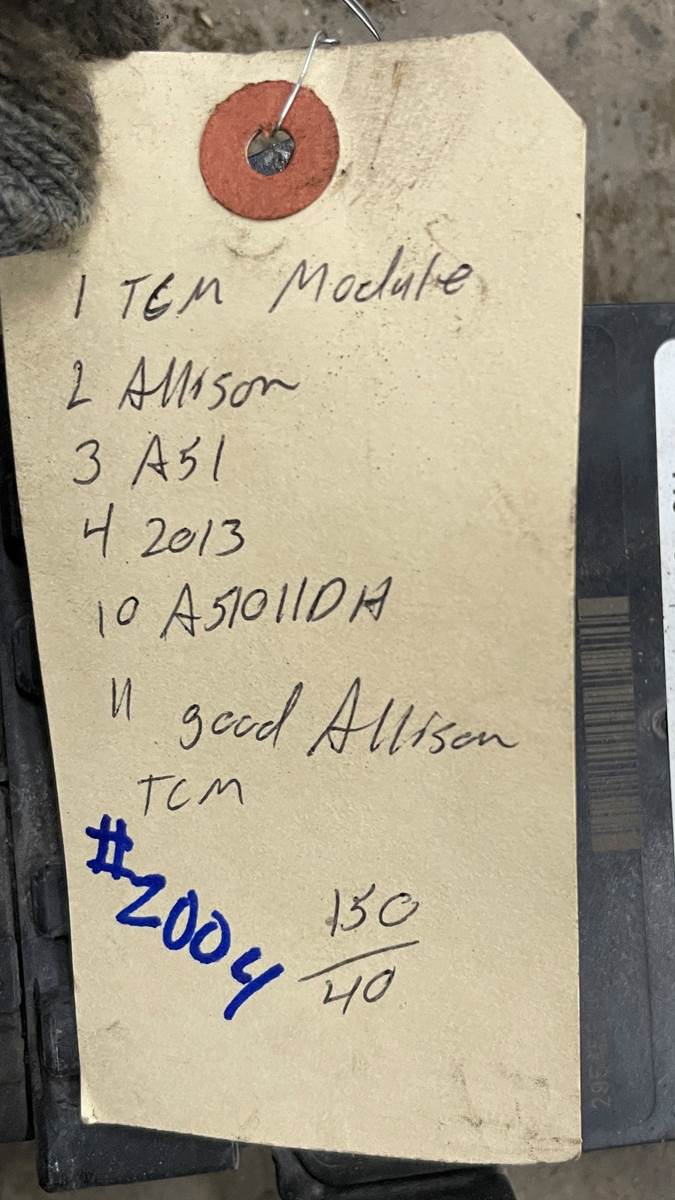 1 TCM Module
2 Allison
3 A51
4 2013
10 A51011DH
11 good Allison
TCM
#2004
150
40